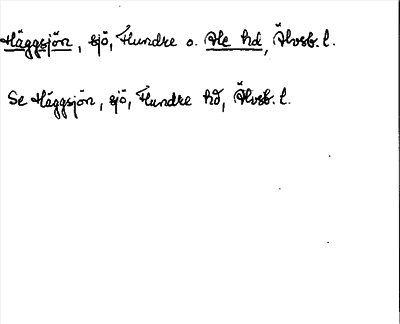 Häggsjön, sjö, Flundre o. Ale hd, Älvsb. l.
Se Häggsjön, sjö, Flundre hd, Älvsb. l.